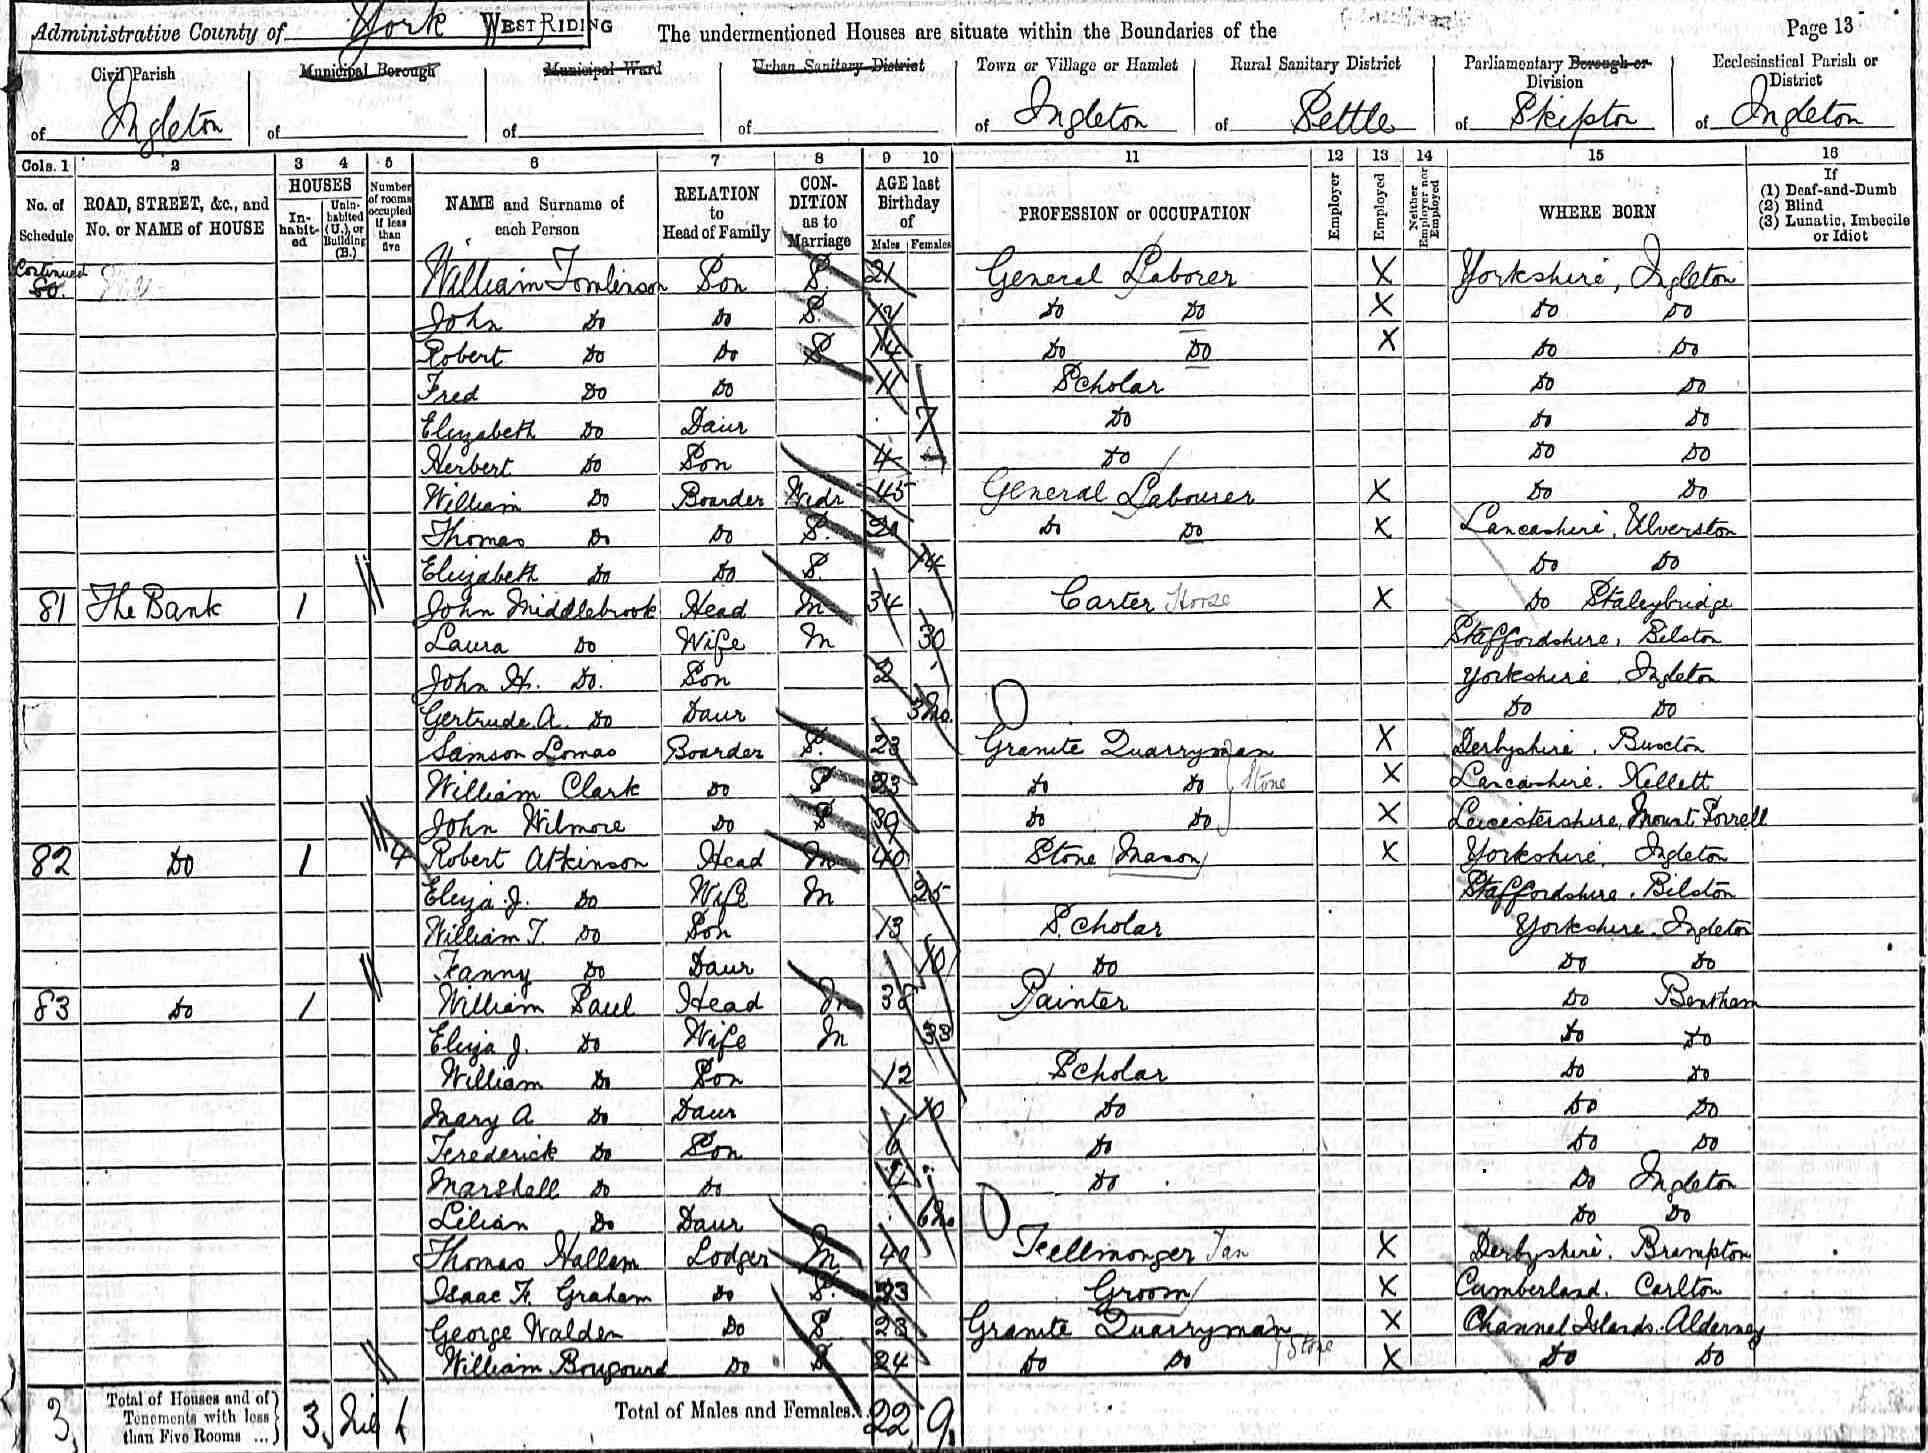 Administrative County of York WEST RIDING The undermentioned Houses are situate within the Boundaries of the Page 13
Civil Parish Municipal Borough Municipal Ward Urban Sanitary District Town or Village or Hamlet Rural Sanitary District Parliamentary Borough or Division Ecclesiastical Parish or District
of Ingleton of of of of Ingleton of Settle of Skipton of Ingleton
Cols. 1 2 3 4 5 6 7 8 9 10 11 12 13 14 15 16
No. of Schedule ROAD, STREET, &c., and No. or NAME of HOUSE HOUSES In-habit-ed Unin-habited (U.), or Building (B.) Number of rooms occupied if less than five NAME and Surname of each Person RELATION to Head of Family CON-DITION as to Marriage AGE last Birthday of Males Females PROFESSION or OCCUPATION Employer Employed Neither Employer nor Employed WHERE BORN If (1) Deaf-and-Dumb (2) Blind (3) Lunatic, Imbecile or Idiot
Continued 80. William Tomlinson Son S. 21 General Laborer X Yorkshire, Ingleton
John Do Do S. Do Do X Do Do
Robert Do Do S 14 Do Do X Do Do
Fred Do Do 11 Scholar Do Do
Elizabeth Do Daur 7 Do Do Do
Herbert Do Son 4 Do Do Do
William Do Boarder Widr 45 General Labourer X Do Do
Thomas Do Do S. Do Do X Lancashire, Ulverston
Elizabeth Do Do S. 14 Do Do
81 The Bank 1 John Middlebrook Head M 34 Carter Horse X Do Staleybridge
Laura Do Wife M 30 Staffordshire, Bilston
John H. Do. Son 2 Yorkshire Ingleton
Gertrude A. Do Daur 3 Mo. Do Do
Samson Lomas Boarder S. 23 Granite Quarryman X Derbyshire, Buxton
William Clark Do S 23 Do Do Stone X Lancashire, Kellett
John Wilmore Do S 39 Do Do X Leicestershire, Mount Sorrell
82 Do 1 4 Robert Atkinson Head M 40 Stone Mason X Yorkshire, Ingleton
Eliza J. Do Wife M 25 Staffordshire, Bilston
William T. Do Son 13 Scholar Yorkshire, Ingleton
Fanny Do Daur 10 Do Do Do
83 Do 1 William Paul Head M 38 Painter Do Bentham
Eliza J. Do Wife M 33 Do Do
William Do Son 12 Scholar Do Do
Mary A Do Daur 10 Do Do Do
Frederick Do Son 6 Do Do Do
Marshall Do Do Do Do Ingleton
Lilian Do Daur 6 Mo Do Do
Thomas Hallam Lodger M 40 Fellmonger Tan X Derbyshire, Brampton
Isaac F. Graham Do S. 23 Groom X Cumberland, Carlton
George Walden Do S. 23 Granite Quarryman X Channel Islands, Alderney
William Bougourd Do S 24 Do Do Stone X Do Do
3 Total of Houses and of Tenements with less than Five Rooms ... 3 Nil 1 Total of Males and Females.. 22 9